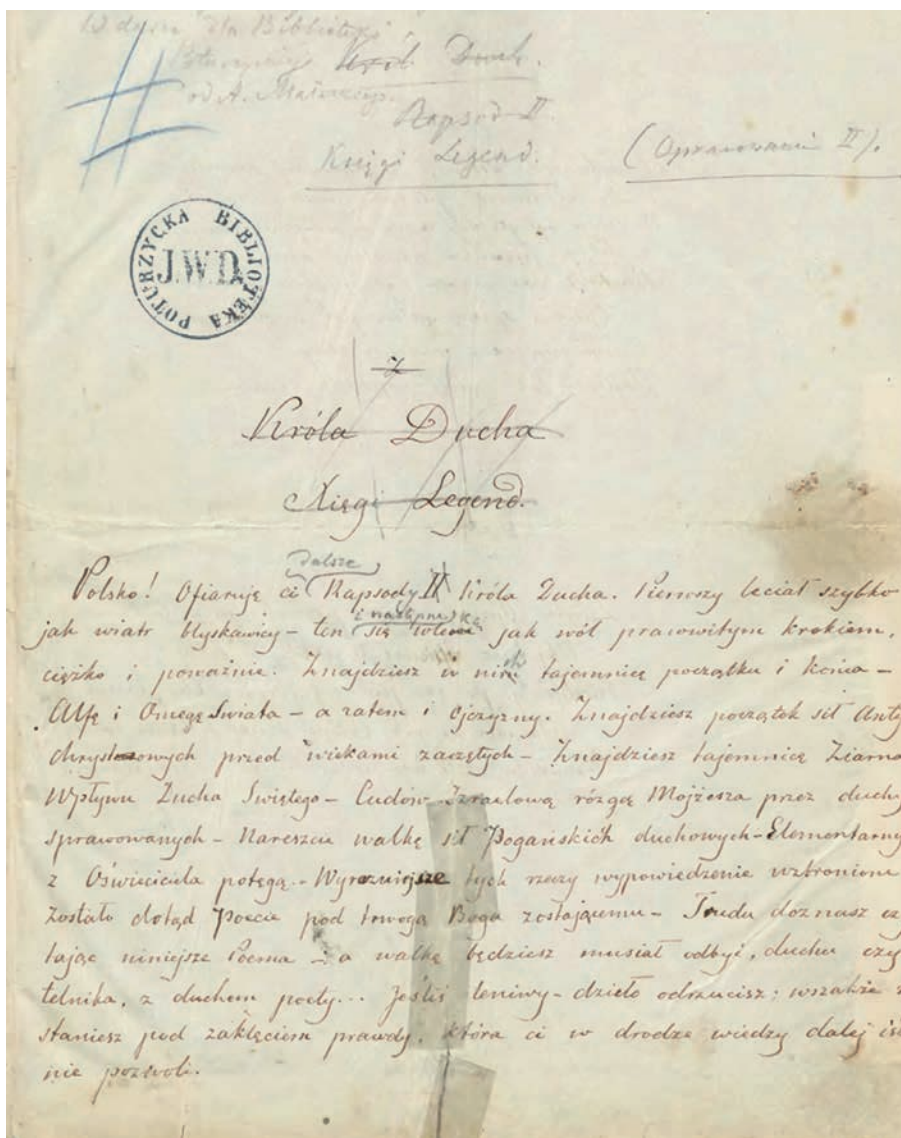 W darze dla Biblioteki
Poturzyckiej Król Duch.
od A. Małeckiego.
Rapsod II
Księgi Legend. (Opracowanie II).
POTURZYCKA BIBLIOTEKA
J.W.D.
Z
Króla Ducha
Xięgi Legend.
dalsze
Polsko! Ofiaruję ci Rapsody II Króla Ducha. Pierwszy leciał szybko
i następne
jak wiatr błyskawicy – ten się wlecze jak wół pracowitym krokiem,
ciężko i poważnie. Znajdziesz w nim tajemnicę początku i końca –
Alfę i Omegę Świata – a zatem i ojczyzny. Znajdziesz początek sił Anty
chrystusowych przed wiekami zaczętych – Znajdziesz tajemnicę Ziarna
Wpływu Ducha Świętego – Cudów Izraelową rózgą Mojżesza przez duchy
sprawowanych – Nareszcie walkę sił Pogańskich duchowych – Elementarny
z Oświeciciela potęgą. – Wyrazniejsze tych rzeczy wypowiedzenie wzbronione
zostało dotąd Poecie pod trwogą Boga zostającemu – Trudu doznasz czy
tając niniejsze Poema – a walkę będziesz musiał odbyć, duchu czy
telnika, z duchem poety... Jeśliś leniwy – dzieło odrzucisz; wszakże z
staniesz pod zaklęciem prawdy, która ci w drodze wiedzy dalej iść
nie pozwoli.